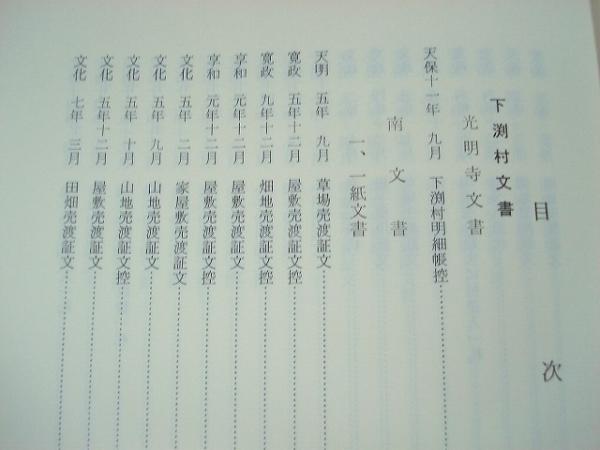 目次
下渕村文書
光明寺文書
天保十一年 九月 下渕村明細帳控
南文書
一、一紙文書
天明 五年 九月 草場売渡証文
寛政 五年十二月 屋敷売渡証文控
寛政 九年十二月 畑地売渡証文控
享和 元年十二月 屋敷売渡証文
享和 元年十二月 屋敷売渡証文控
文化 五年 二月 家屋敷売渡証文
文化 五年 九月 山地売渡証文
文化 五年 十月 山地売渡証文控
文化 五年十二月 屋敷売渡証文控
文化 七年 三月 田畑売渡証文